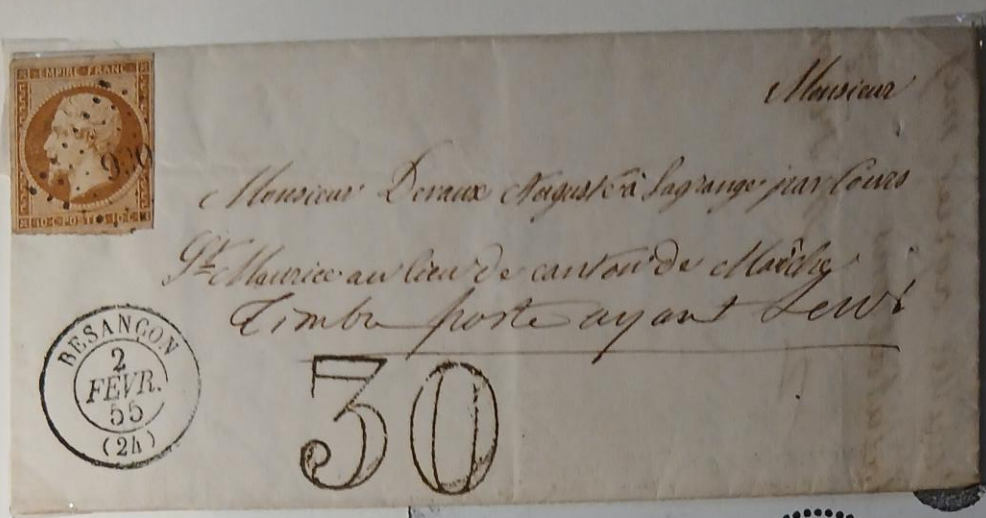 EMPIRE FRANC
10 C POSTES 10 C
Monsieur
Monsieur Devaux Auguste à Lagrange par Cours
St Maurice au lieu de canton de Maîche
Timbre poste ayant servi
BESANÇON
2
FÉVR.
55
(24)
30